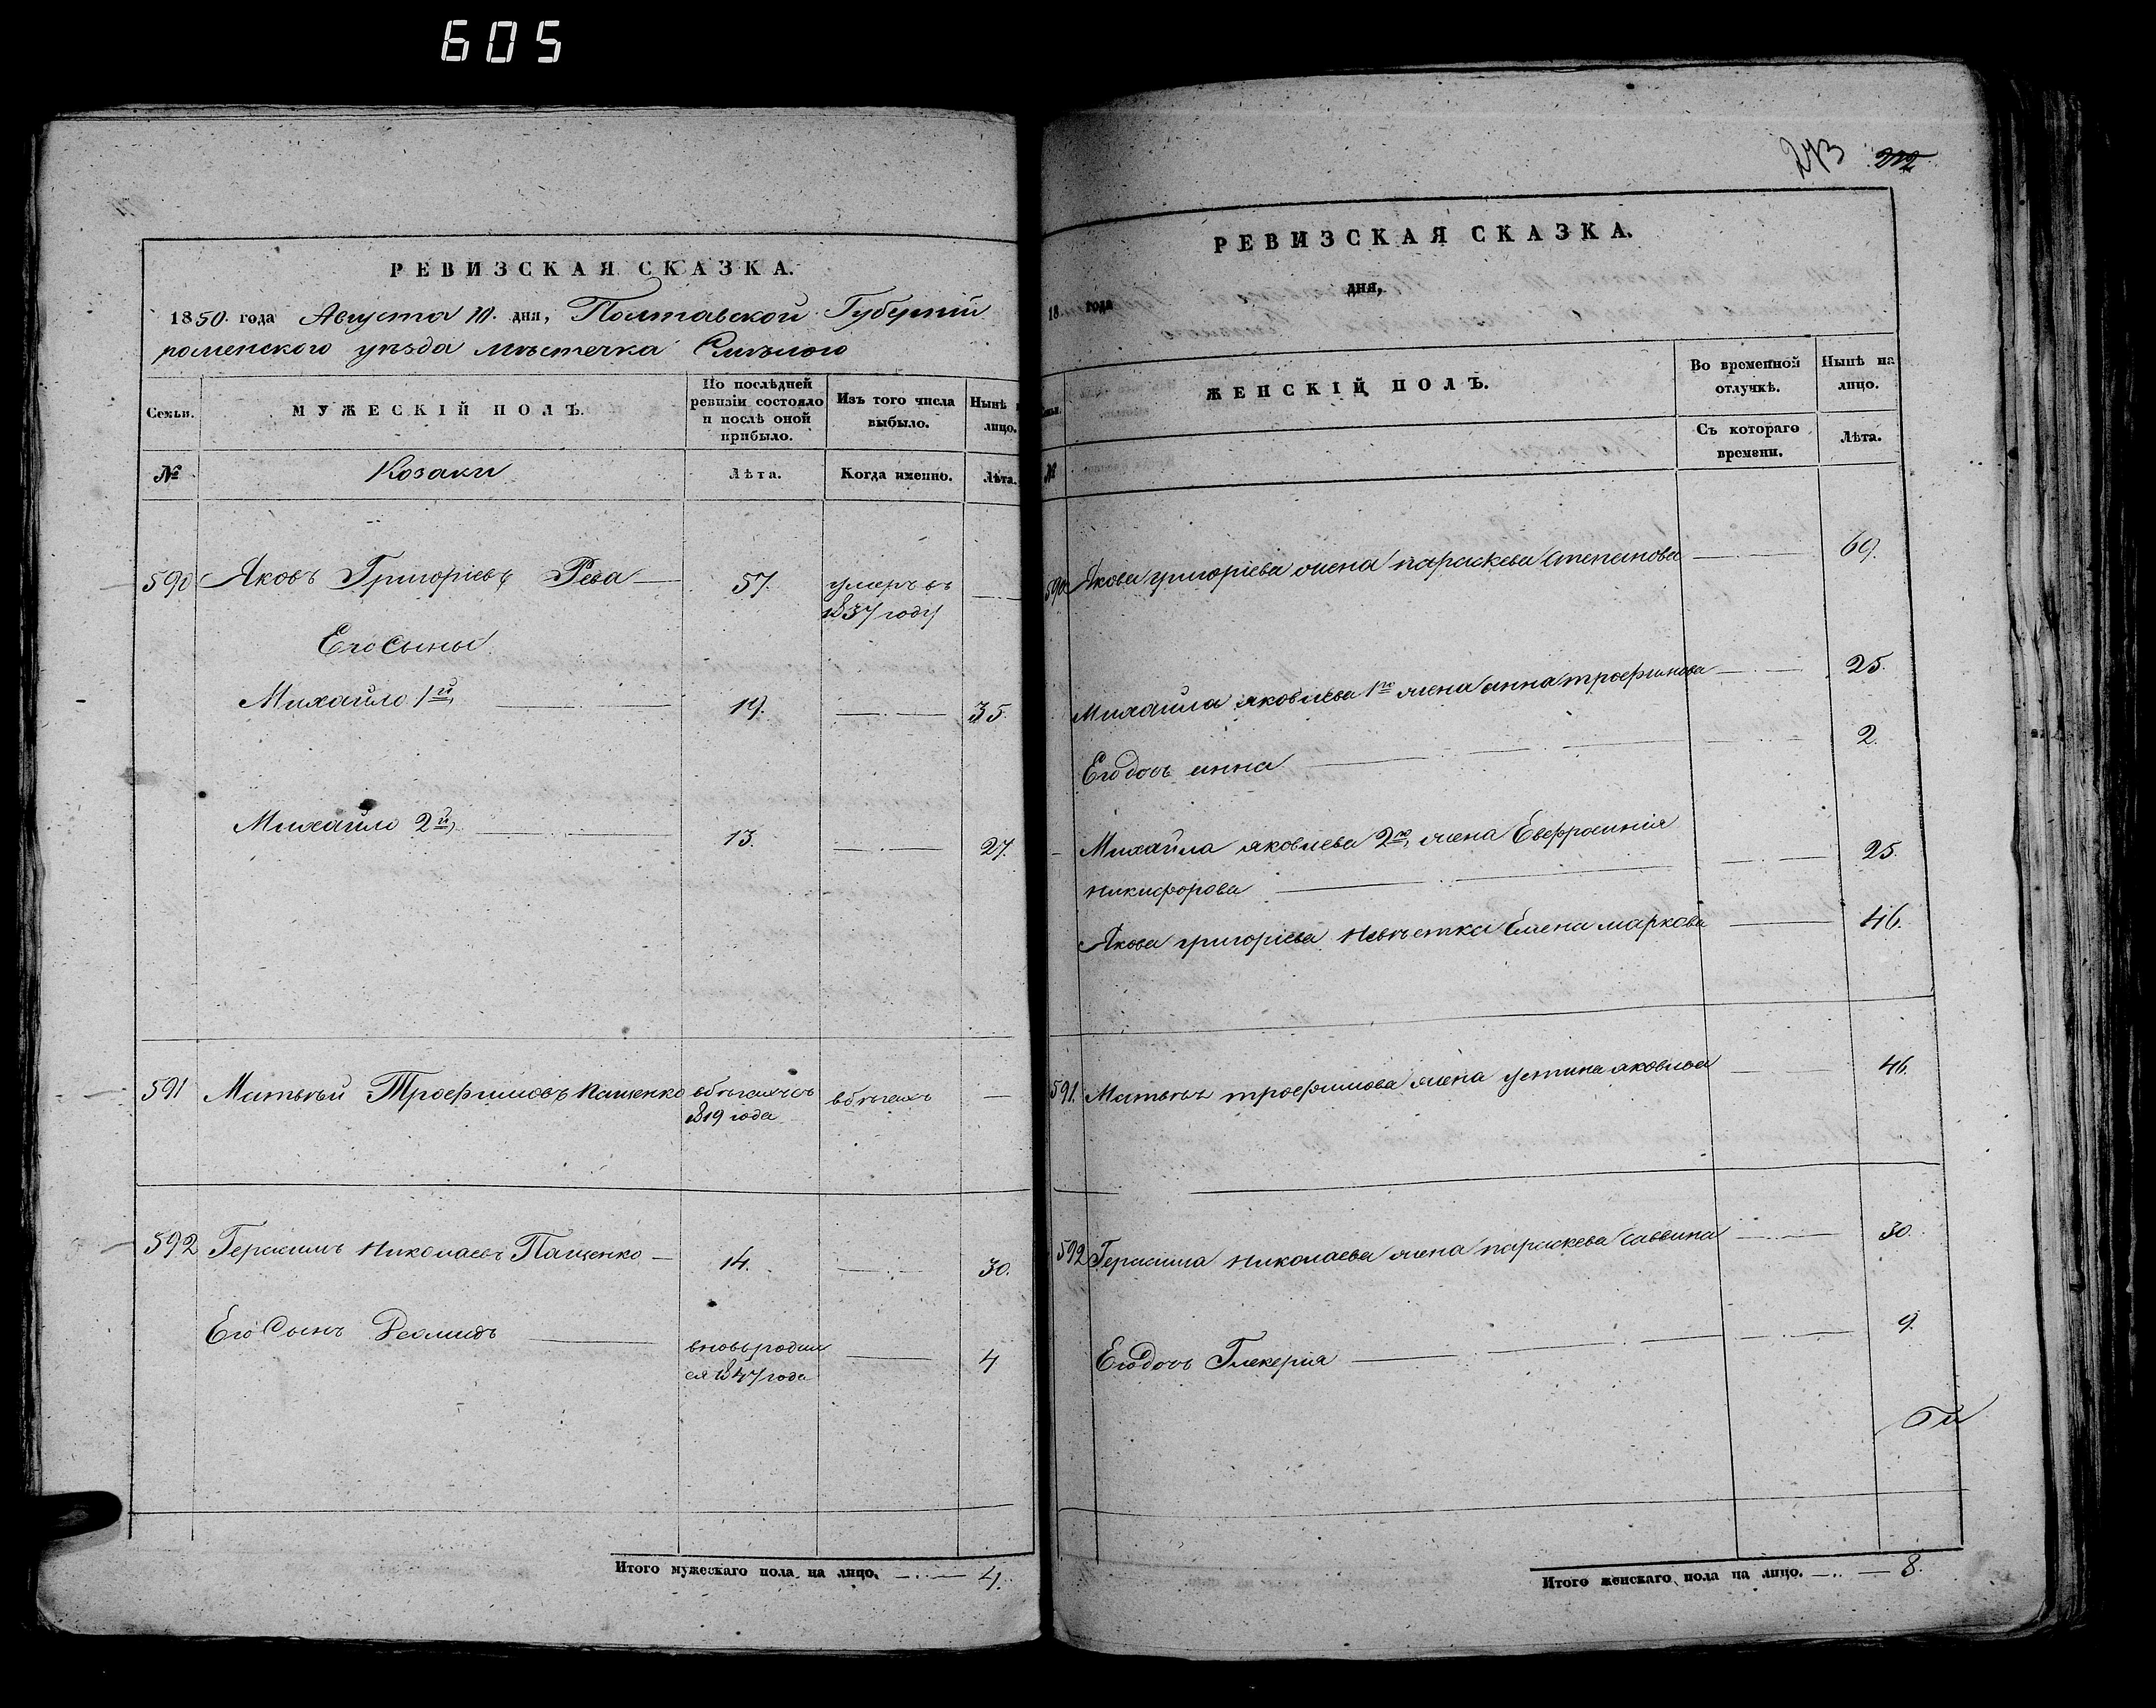 605
РЕВИЗСКАЯ СКАЗКА.
1850. года Августа 10. дня, Полтавской Губерніи
роменского уѣзда мѣстечка Смѣлого
Семьи.
МУЖЕСКІЙ ПОЛЪ.
По послѣдней ревизіи состояло и послѣ оной прибыло.
Изъ того числа выбыло.
Нынѣ лицо.
№
Козаки
Лѣта.
Когда именно.
Лѣта.
590 Яковъ Григоріевъ Рева — 57. умеръ въ
1837 году
Его Сыны
Михайло 1й, 19. 35.
Михайло 2й, 13. 27.
591 Матвѣй Трофимовъ Пащенко вбѣгахъ съ вбѣгахъ —
1819 года
592 Герасимъ Николаевъ Пащенко — 14. 30.
Его Сынъ вновь родил 4
ся 1847 года
Итого мужескаго пола на лицо. 4.
273 272
РЕВИЗСКАЯ СКАЗКА.
18 года дня,
№
ЖЕНСКІЙ ПОЛЪ.
Во временной отлучкѣ.
Нынѣ на лицо.
Съ котораго времени.
Лѣта.
590 Якова григоріева жена параскева Степанова 69.
Михаила яковлева 1го жена анна трофимова 25.
Его дочь анна 2.
Михайла яковлева 2го, жена Евфросинія
никифорова 25.
Якова григоріева невѣстка Елена маркова 46.
591. Матвѣя трофимова жена устина яковлева 46.
592 Герасима николаева жена параскева саввина 30.
Его дочь Гликерия 9.
Итого женскаго пола на лицо. 8.